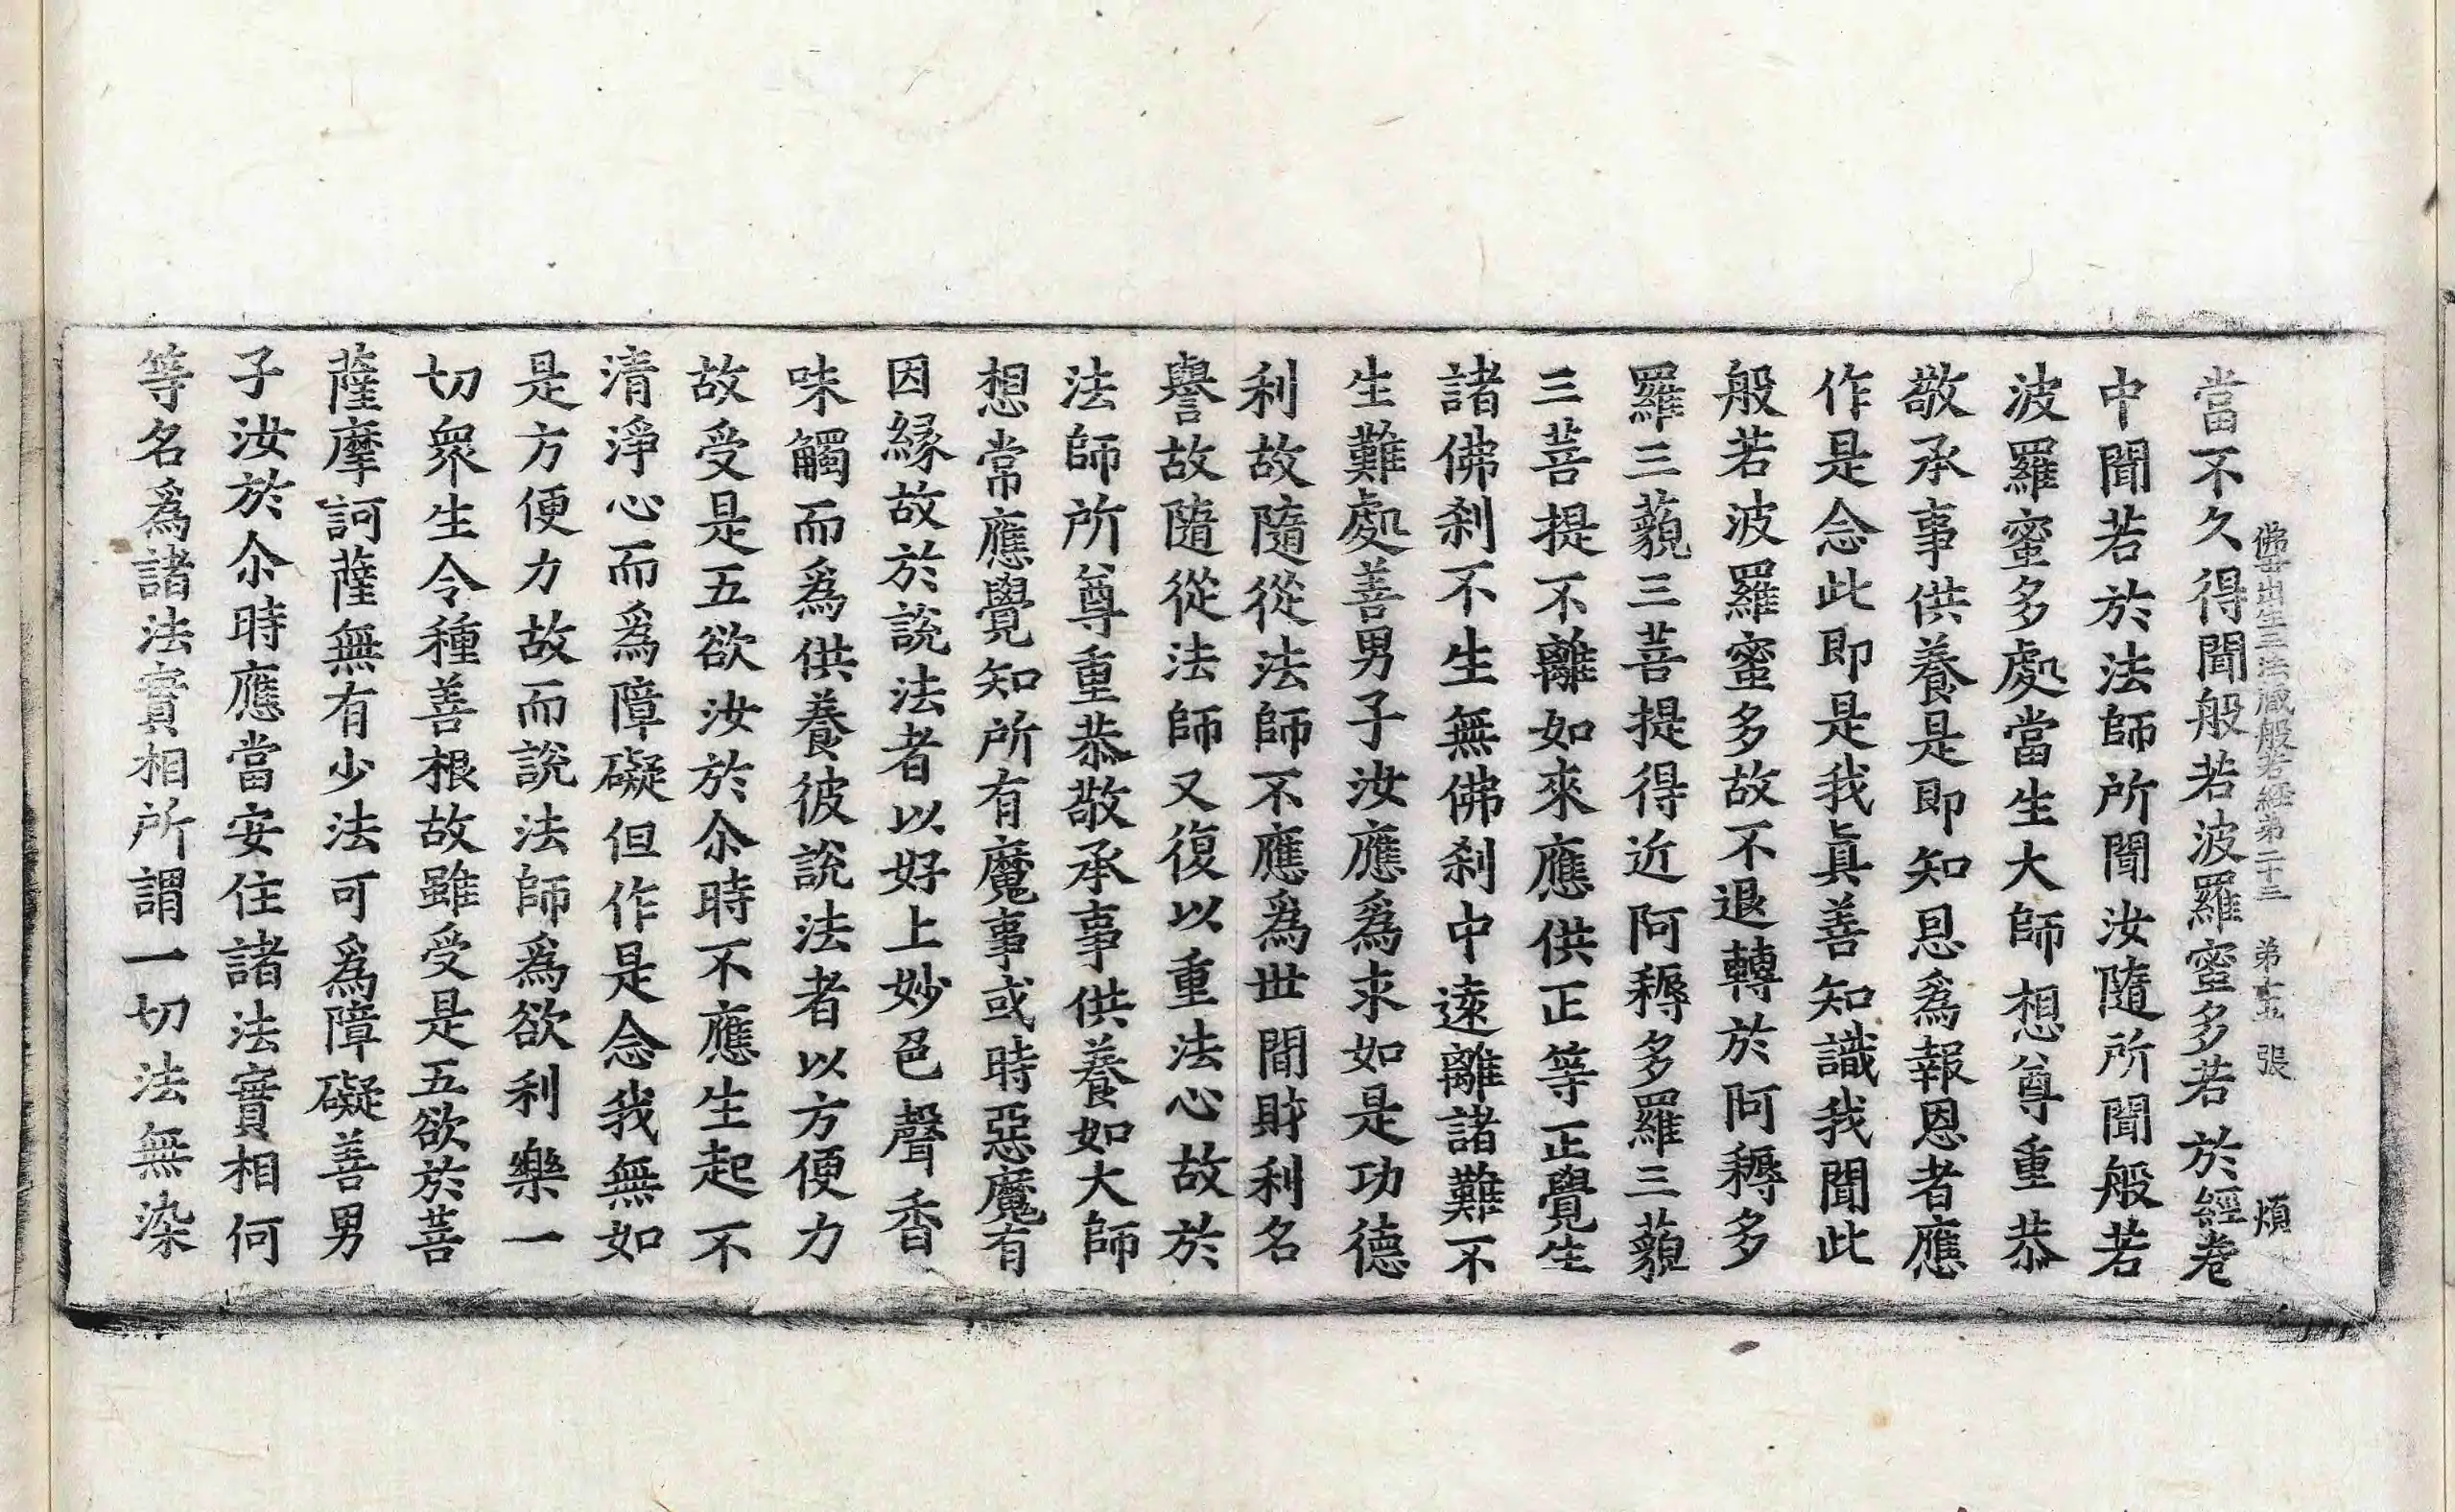 佛母出生三法藏般若經第二十三 第十五 張 煩
當不久得聞般若波羅蜜多若於經卷
中聞若於法師所聞汝隨所聞般若
波羅蜜多處當生大師想尊重恭
敬承事供養是即知恩爲報恩者應
作是念此即是我眞善知識我聞此
般若波羅蜜多故不退轉於阿耨多
羅三藐三菩提得近阿耨多羅三藐
三菩提不離如來應供正等正覺生
諸佛刹不生無佛刹中遠離諸難不
生難處善男子汝應爲求如是功德
利故隨從法師不應爲世間財利名
譽故隨從法師又復以重法心故於
法師所尊重恭敬承事供養如大師
想常應覺知所有魔事或時惡魔有
因縁故於說法者以好上妙色聲香
味觸而爲供養彼說法者以方便力
故受是五欲汝於尒時不應生起不
清淨心而爲障礙但作是念我無如
是方便力故而說法師爲欲利樂一
切衆生令種善根故雖受是五欲於菩
薩摩訶薩無有少法可爲障礙善男
子汝於尒時應當安住諸法實相何
等名爲諸法實相所謂一切法無染